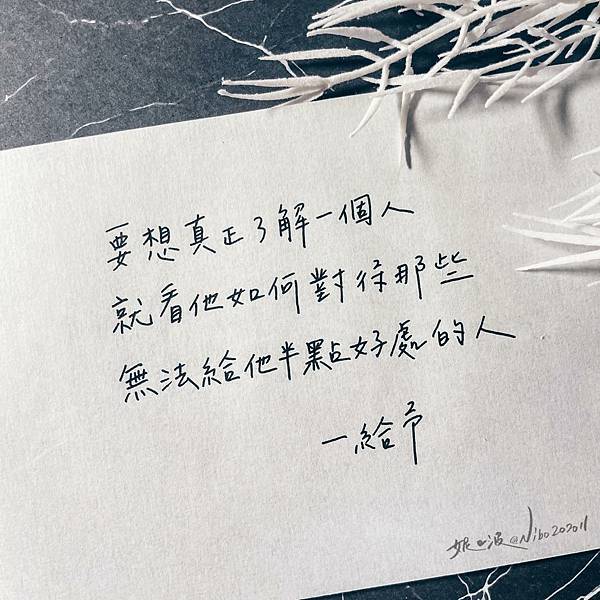 要想真正了解一個人
就看他如何對待那些
無法給他半點好處的人
—給予
妮波@Nibo202011